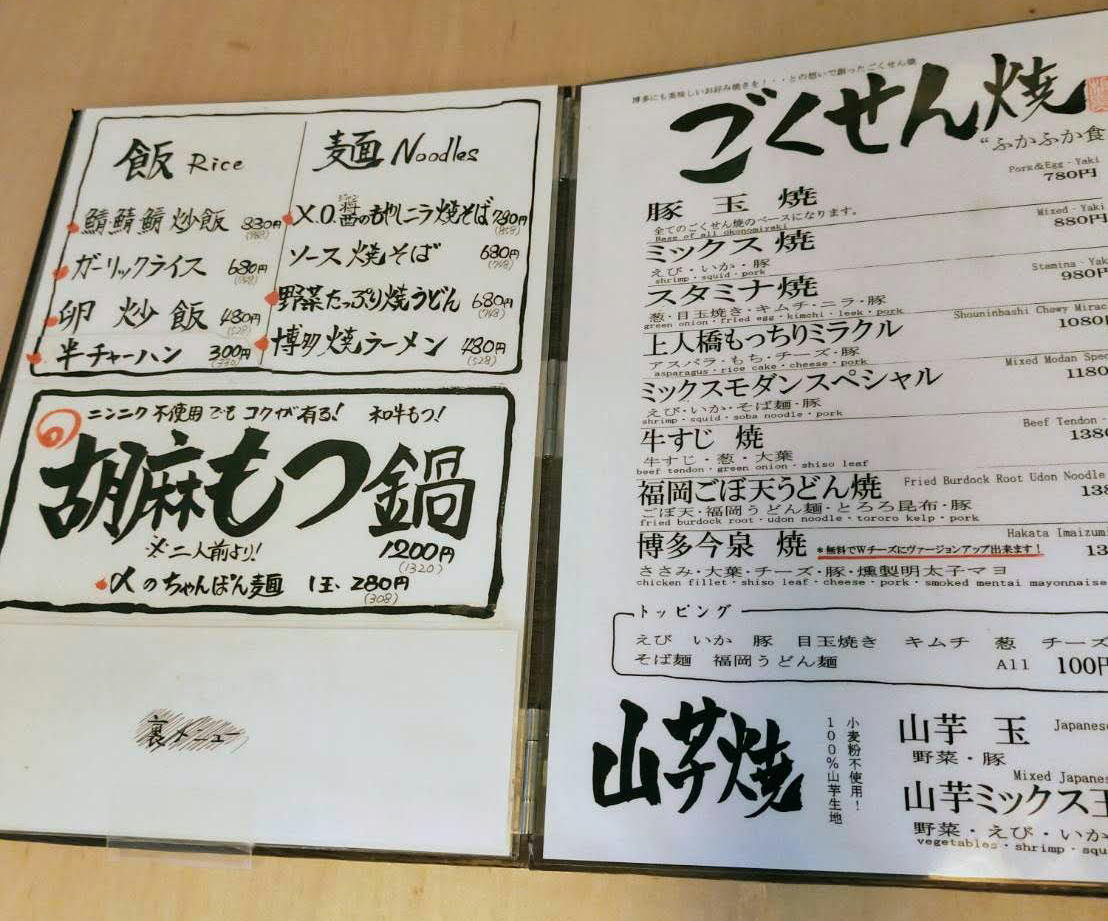 飯 Rice
鯖鯖鯖炒飯 880円
ガーリックライス 680円
(748)
卵炒飯 480円
(528)
半チャーハン 300円
(330)
麺 Noodles
X.O.醤のもやしニラ焼そば 780円
(858)
ソース焼そば 680円
(748)
野菜たっぷり焼うどん 680円
(748)
博多焼ラーメン 480円
(528)
ニンニク不使用でもコクが有る! 和牛もつ!
胡麻もつ鍋
※二人前より! 1200円
(1320)
〆のちゃんぽん麺 1玉 280円
(308)
裏メニュー
博多にも美味しいお好み焼きを!・・・との想いで創ったごくせん焼
ごくせん焼
“ふかふか食
Pork&Egg-Yaki
豚玉焼 780円
全てのごくせん焼のベースになります。
Base of all okonomiyaki
Mixed-Yaki
ミックス焼 880円
えび・いか・豚
shrimp・squid・pork
Stamina-Yak
スタミナ焼 980円
葱・目玉焼き・キムチ・ニラ・豚
green onion・fried egg・kimchi・leek・pork
Shouninbashi Chewy Mirac
上人橋もっちりミラクル 1080
アスパラ・もち・チーズ・豚
asparagus・rice cake・cheese・pork
Mixed Modan Spec
ミックスモダンスペシャル 1180
えび・いか・そば麺・豚
shrimp・squid・soba noodle・pork
Beef Tendon
牛すじ焼 1380
牛すじ・葱・大葉
beef tendon・green onion・shiso leaf
Fried Burdock Root Udon Noodle
福岡ごぼ天うどん焼 138
ごぼ天・福岡うどん麺・とろろ昆布・豚
fried burdock root・udon noodle・tororo kelp・pork
Hakata Imaizum
博多今泉焼 *無料でWチーズにヴァージョンアップ出来ます! 13
ささみ・大葉・チーズ・豚・燻製明太子マヨ
chicken fillet・shiso leaf・cheese・pork・smoked mentai mayonnaise
トッピング
えび いか 豚 目玉焼き キムチ 葱 チーズ
そば麺 福岡うどん麺 All 100円
山芋焼
小麦粉不使用!
100%山芋生地
山芋玉 Japanese
野菜・豚
Mixed Japanes
山芋ミックス玉
野菜・えび・いか
vegetables・shrimp・squ